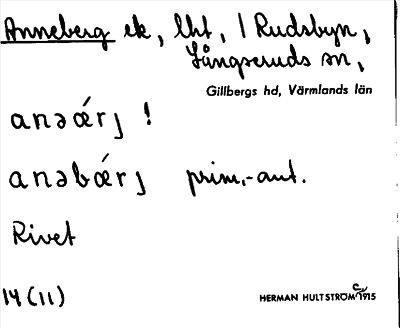 Anneberg ek, lht, i Rudsbyn,
Långseruds sn,
Gillbergs hd, Värmlands län
anəǽrj !
anəbǽrj prim.-aut.
Rivet
14 (11)
HERMAN HULTSTRÖM C. 1915